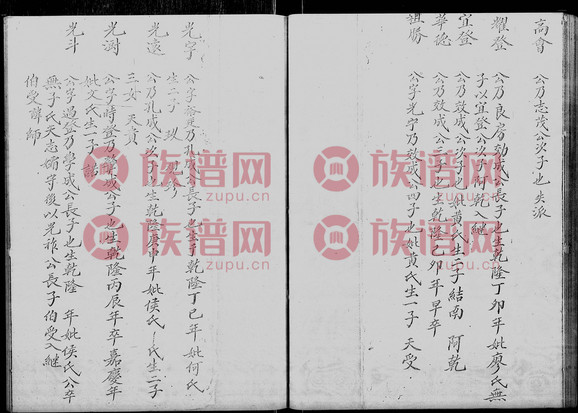 高會
公乃志茂公次子也失派
耀登
公乃良房効成公長子也生乾隆丁卯年妣廖氏無
子以宜登公次子阿乾入継
宜登
公乃效成公次子也妣黄氏生二子結南 阿乾
華德
公乃效成公三子也生乾隆己卯年早卒
祖勝
公字光宁乃效成公四子也妣黄氏生一子天受
光宇
公字 乃孔成公長子也生于乾隆丁巳年妣何氏
生二子
光遠
公乃孔成公次子也生乾隆庚申年妣侯氏 氏生二子
三女 天貴
光澍
公字時登乃 成公子也生乾隆丙辰年卒嘉慶年
妣文氏生一子
光斗
公字過登乃學成公長子也生乾隆 年妣侯氏公卒
無子氏天志婦守後以光祚公長子伯受入継
伯受 師
族谱网
zupu.cn
族谱网
zupu.cn
族谱网
zupu.cn
族谱网
zupu.cn